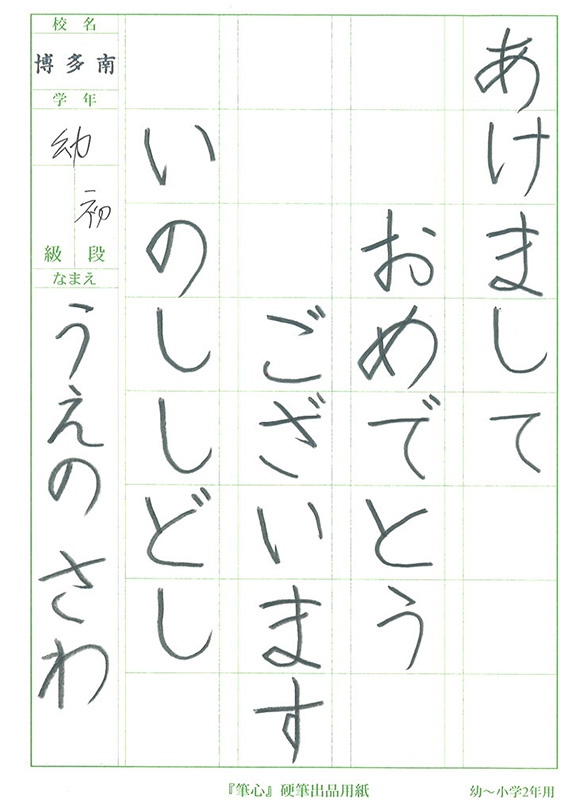 あけまして
おめでとう
ございます
いのししどし
校名
博多南
学年
幼
初
級 段
なまえ
うえの さわ
『筆心』硬筆出品用紙
幼～小学2年用